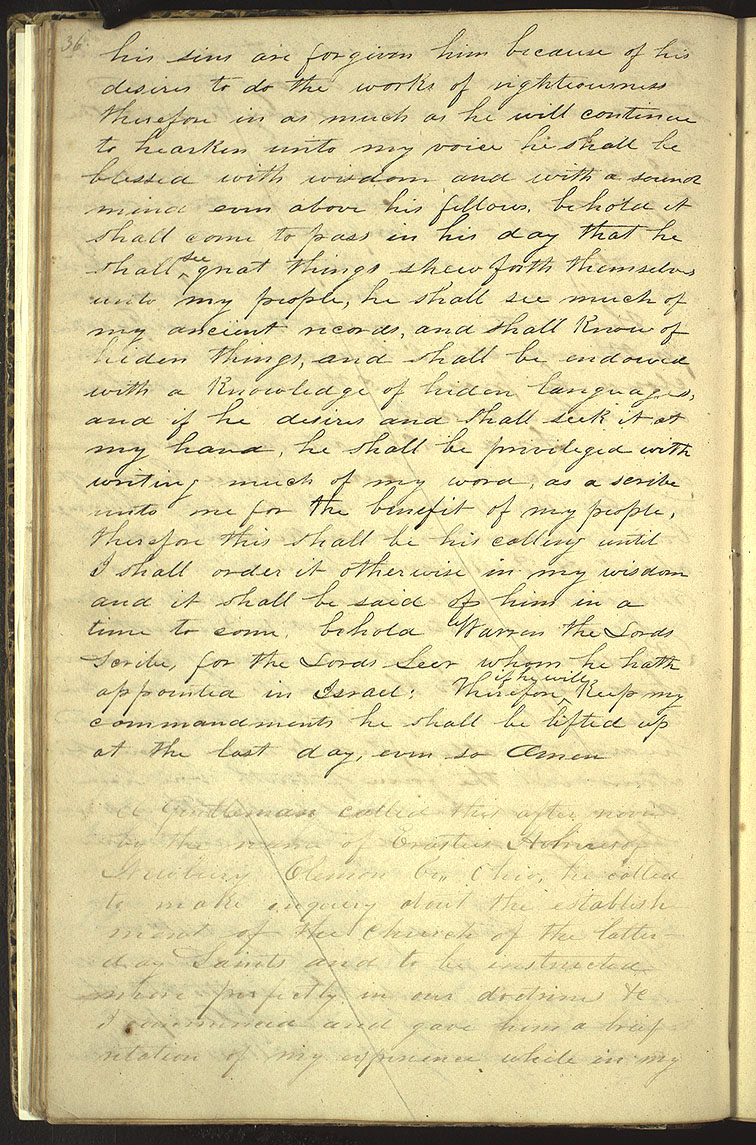 36
his sins are forgiven him because of his
desires to do the works of righteousness
therefore in as much as he will continue
to hearken unto my voice he shall be
blessed with wisdom and with a sound
mind even above his fellows, behold it
shall come to pass in his day that he
shall see great things shew forth themselves
unto my people, he shall see much of
my ancient records, and shall know of
hiden things, and shall be endowed
with a knowledge of hiden languages,
and if he desires and shall seek it at
my hand, he shall be privileged with
writing much of my word, as a scribe
unto me for the benefit of my people,
therefore this shall be his calling until
I shall order it otherwise in my wisdom
and it shall be said of him in a
time to come, behold Warren the Lords
Scribe, for the Lords Seer whom he hath
appointed in Israel: Therefore, if he will Keep my
commandments he shall be lifted up
at the last day, even so Amen
A Gentleman called this after noon
by the name of Erastus Holmes of
Newbury Clemon Co,, Ohio, he called
to make inquiry about the establish
ment of the Church of the latter-
day Saints and to be instructed
more perfectly in our doctrine &c
I commenced and gave him a brief
relation of my experience while in my